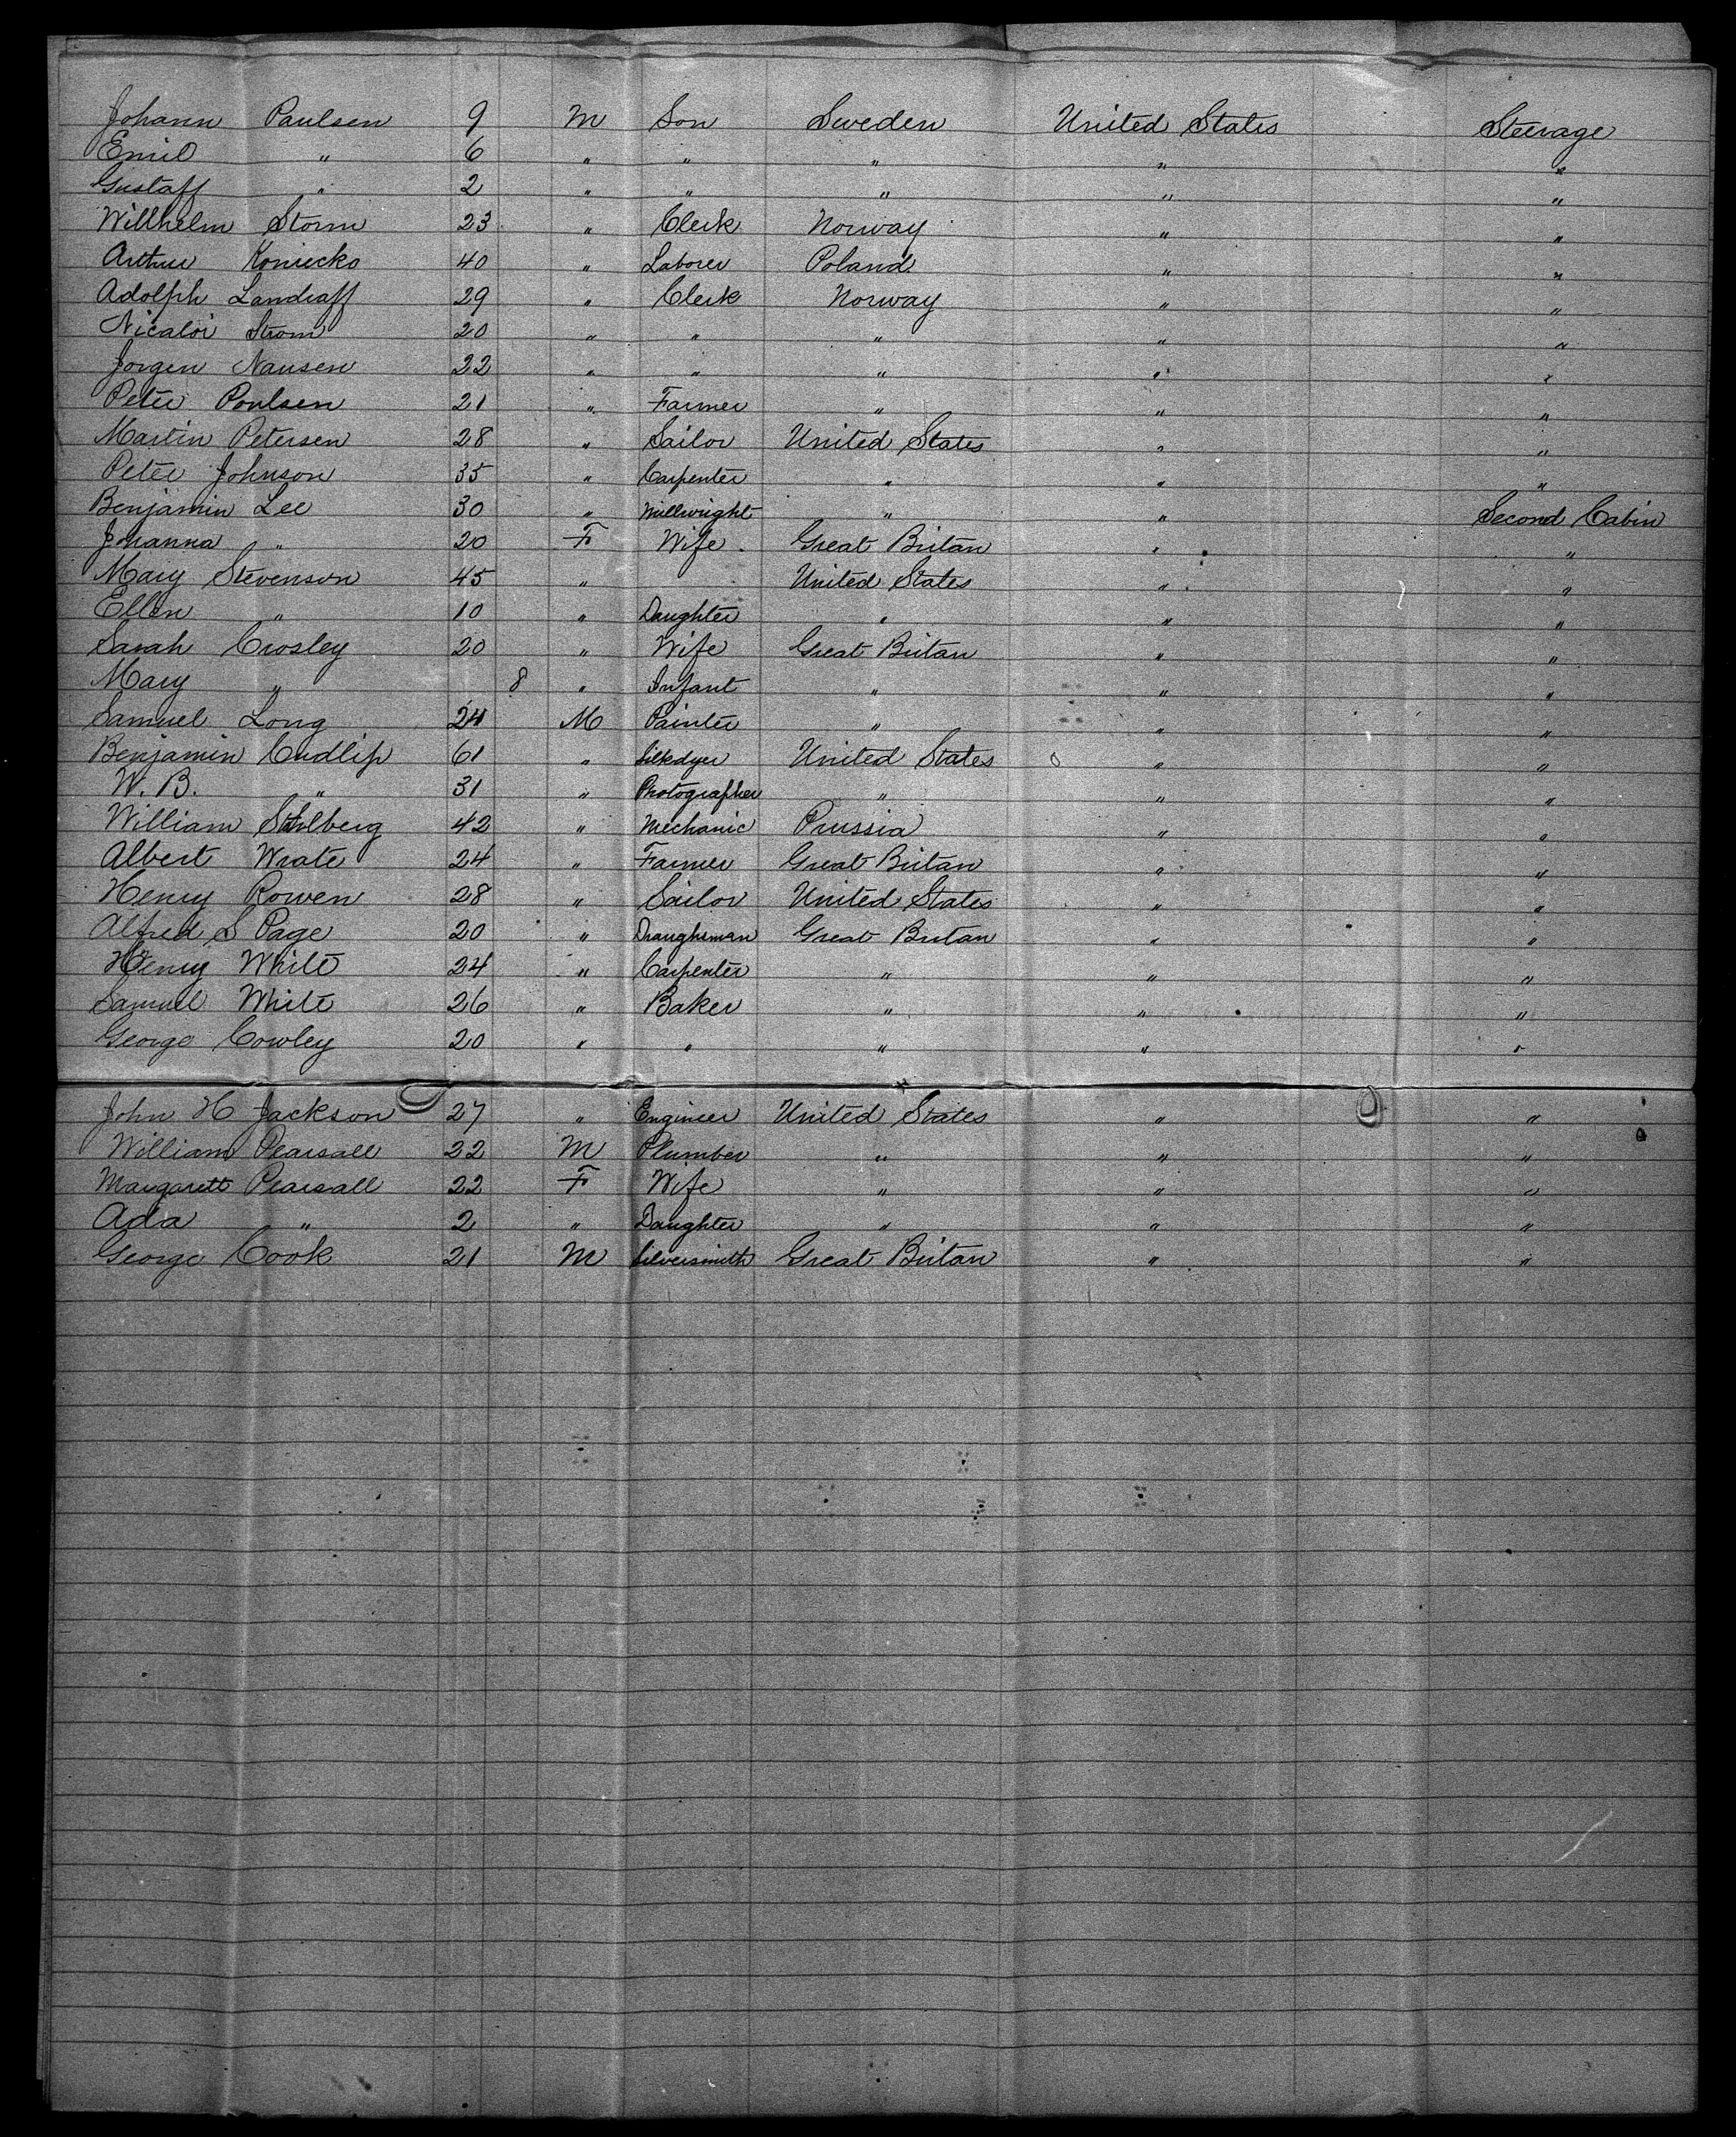 Johann Paulsen 9 M Son Sweden United States Steerage
Emil " 6 " " " " "
Gustaff " 2 " " " " "
Willhelm Storm 23 " Clerk Norway " "
Arthur Koniecko 40 " Laborer Poland " "
Adolph Landraff 29 " Clerk Norway " "
Nicaloi Strom 20 " " " " "
Jorgen Nansen 22 " " " " "
Peter Poulsen 21 " Farmer " " "
Martin Petersen 28 " Sailor United States " "
Peter Johnson 35 " Carpenter " " "
Benjamin Lee 30 " Millwright " " Second Cabin
Johanna " 20 F Wife Great Britan " "
Mary Stevenson 45 " United States " "
Ellen " 10 " Daughter " " "
Sarah Crosley 20 " Wife Great Britan " "
Mary " 8 " Infant " " "
Samuel Long 24 M Painter " " "
Benjamin Cudlip 61 " Silkdyer United States " "
W. B. " 31 " Photographer " " "
William 42 " Mechanic Prussia " "
Albert Wrate 24 " Farmer Great Britan " "
Henry Rowen 28 " Sailor United States " "
Alfred S Page 20 " Draughsman Great Britan " "
Henry White 24 " Carpenter " " "
Samuel White 26 " Baker " " "
George Cowley 20 " " " " "
John H Jackson 27 " Engineer United States " "
William Pearsall 22 M Plumber " " "
Margarett Pearsall 22 F Wife " " "
Ada " 2 " Daughter " " "
George Cook 21 M Silversmith Great Britan " "